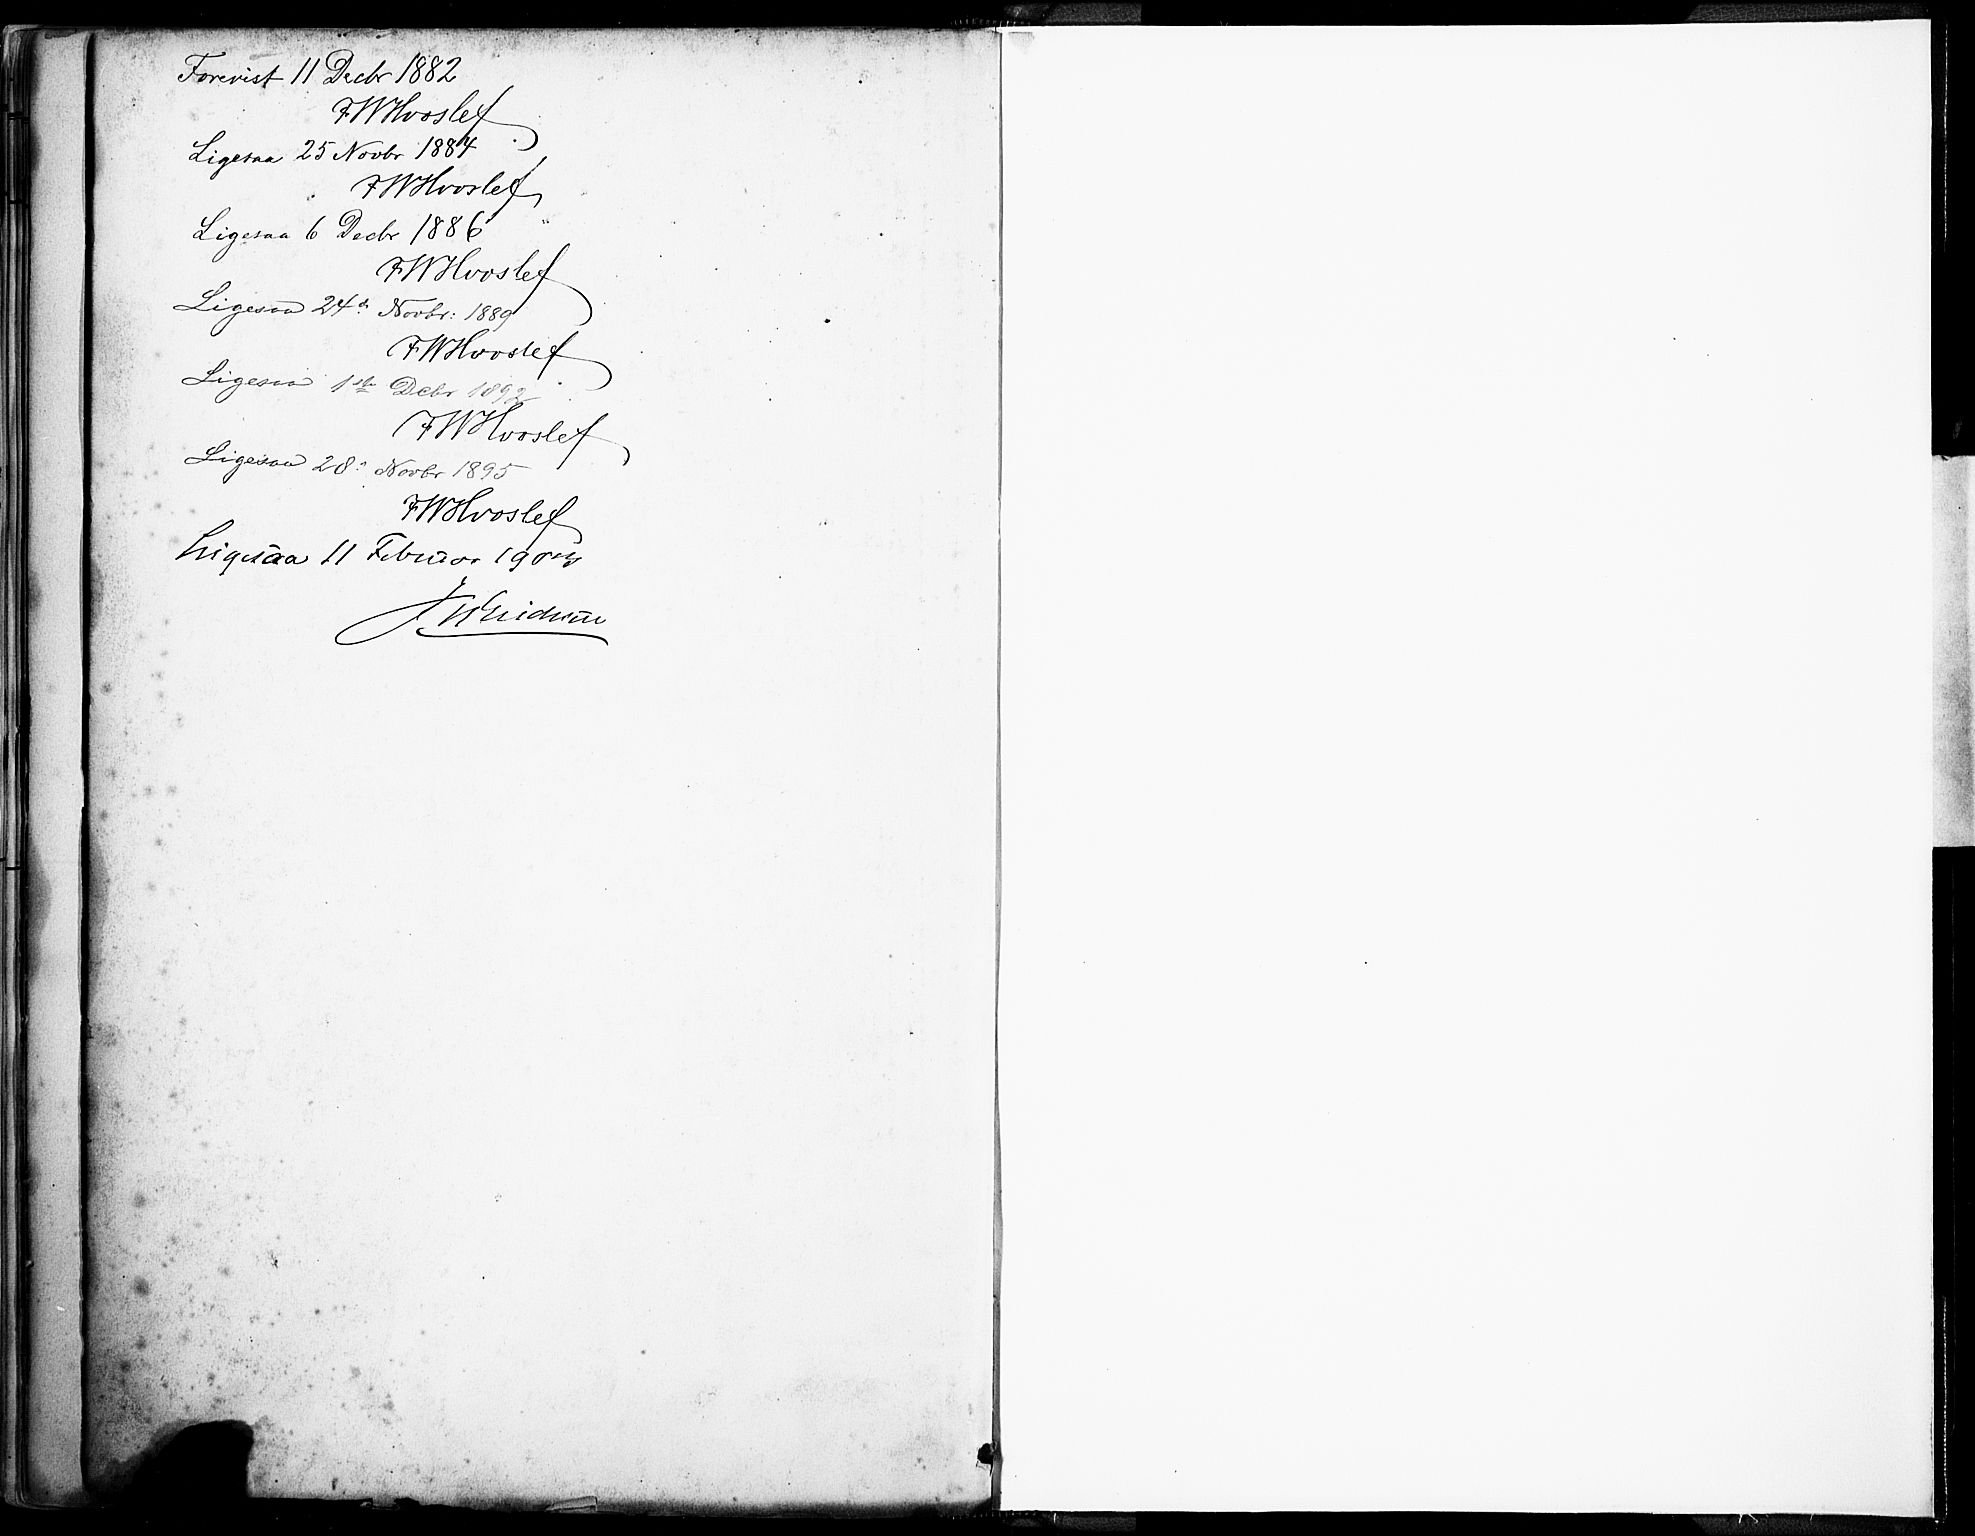 Forevist 11 Decbr 1882
FWHvoslef
Ligesaa 25 Novbr 1884
FWHvoslef
Ligesaa 6 Decbr 1886
FWHvoslef
Ligesaa 24de Novbr: 1889
FWHvoslef
Ligesaa 1ste Debr 1892
FWHvoslef
Ligesaa 28: Novbr 1895
FWHvoslef
Ligesaa 11 Februar